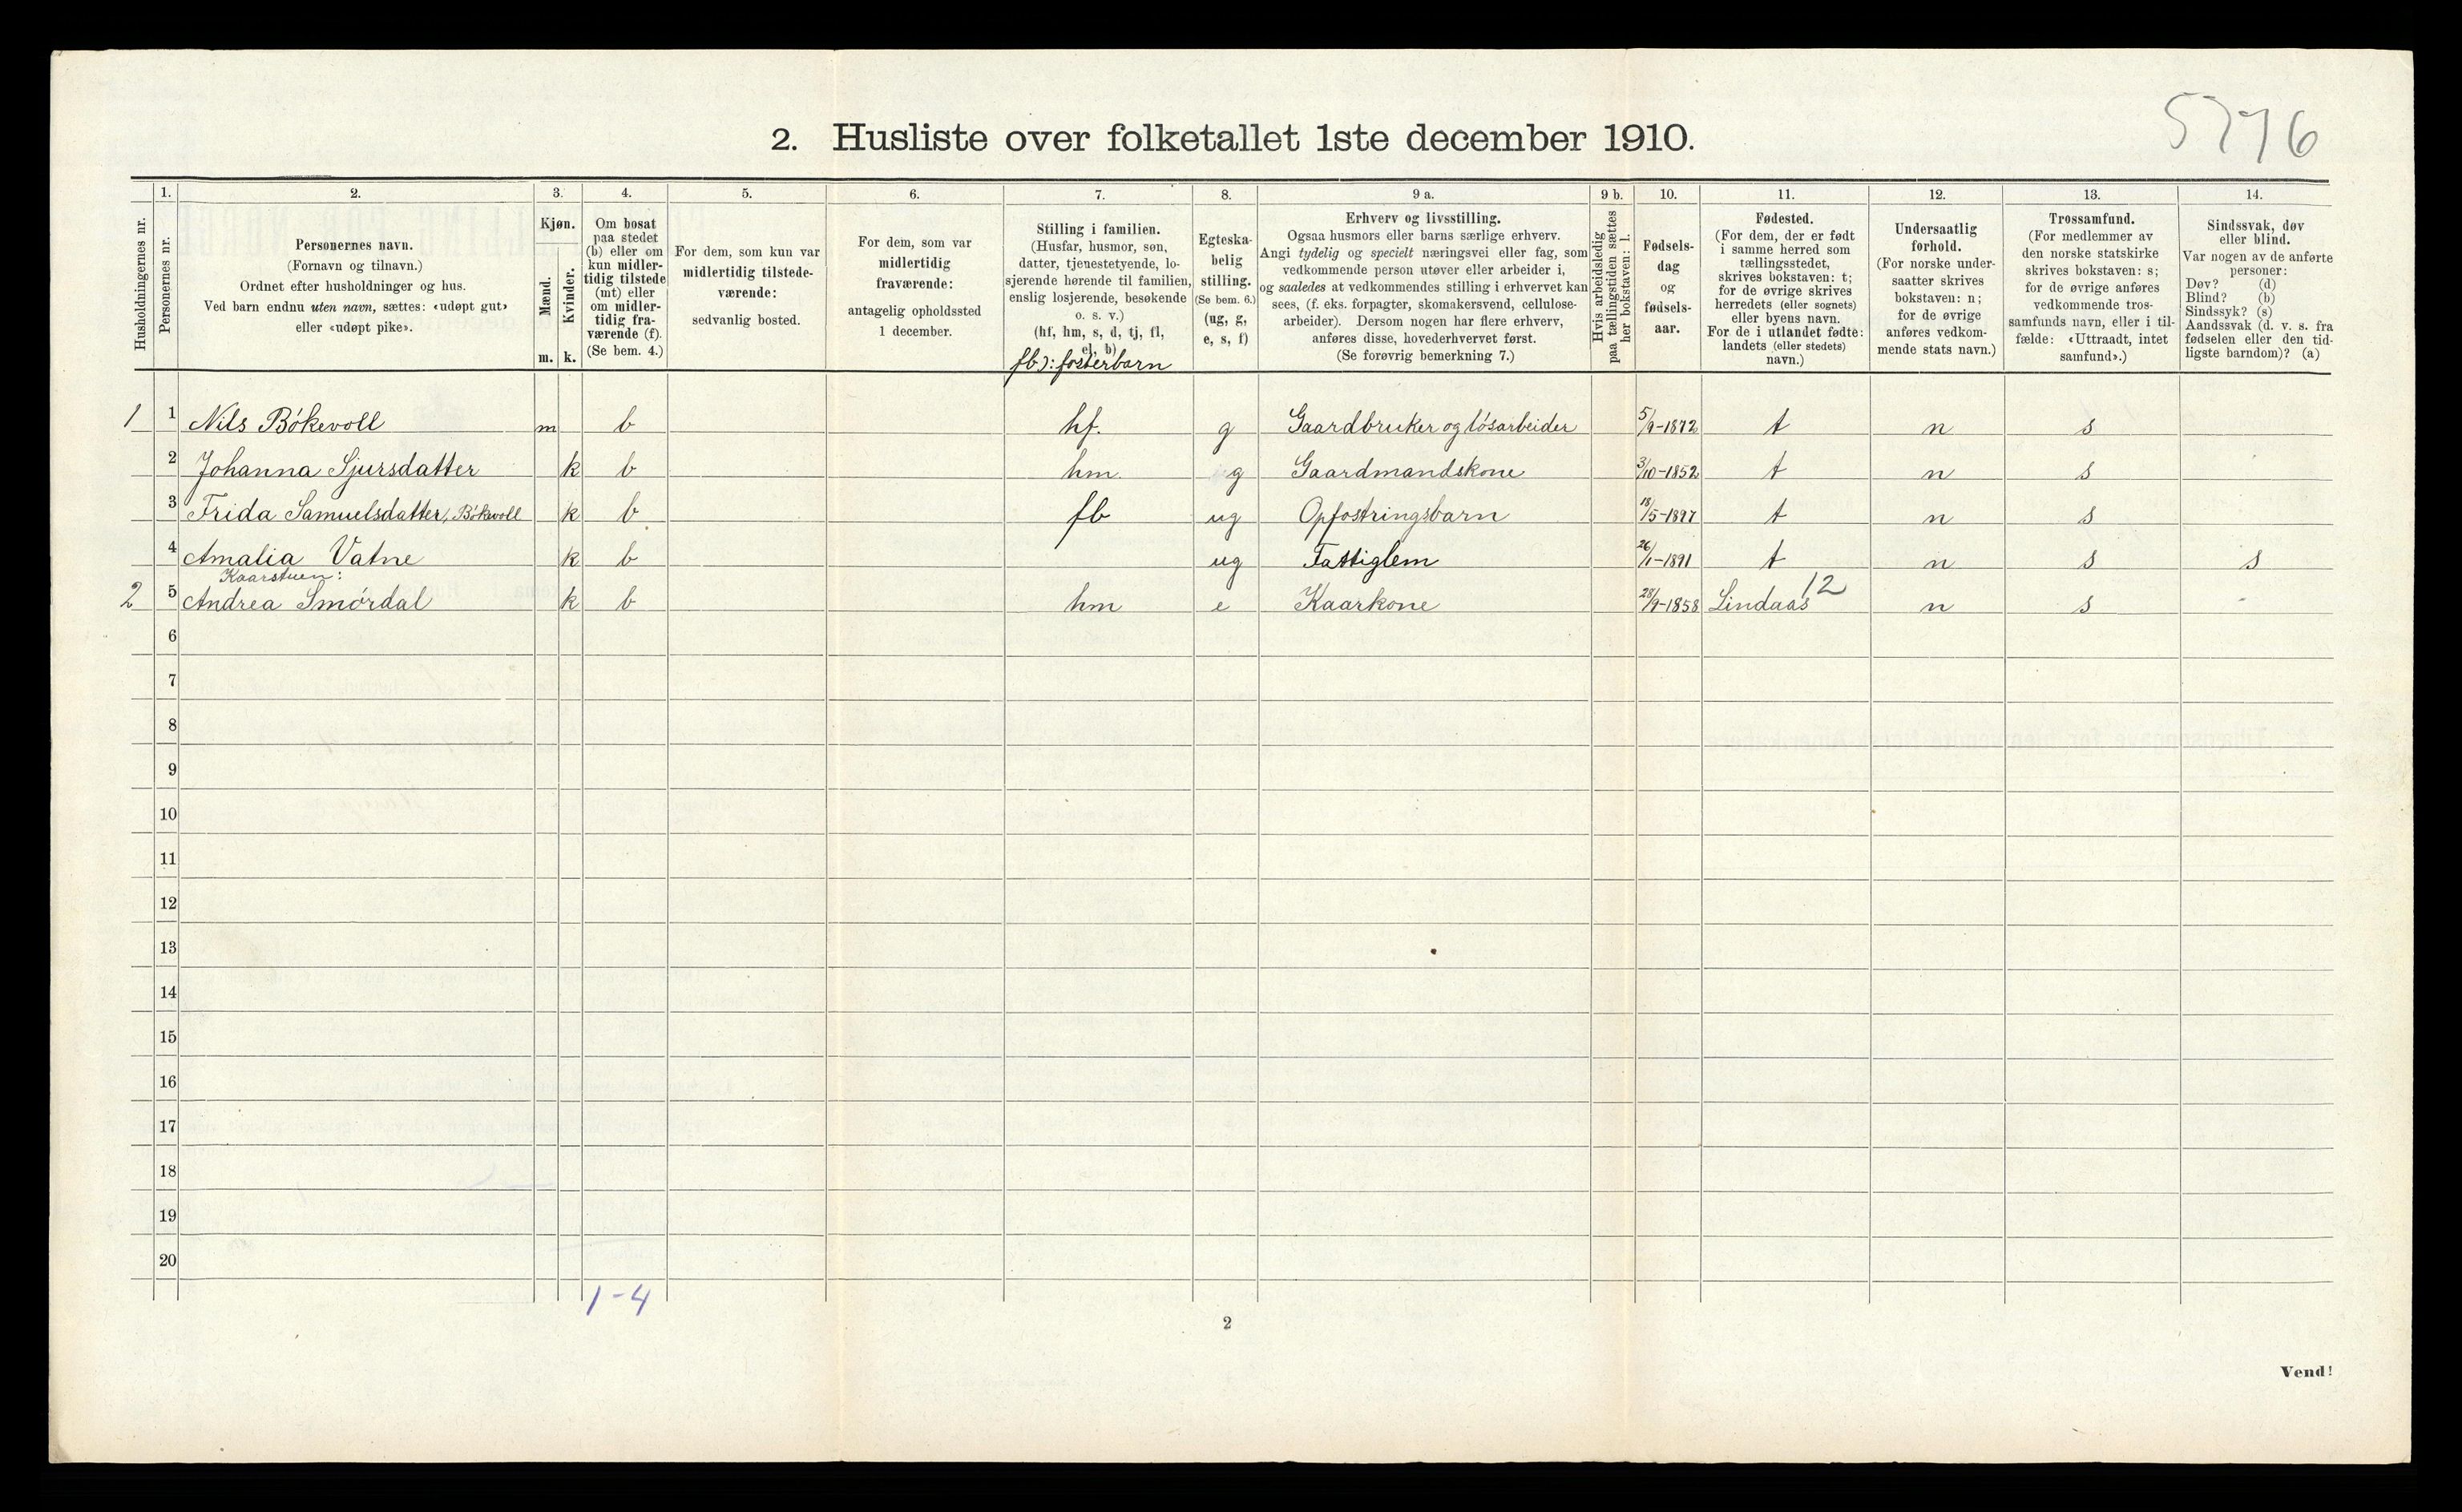 5776
2. Husliste over folketallet 1ste december 1910.
1. 2. 3. 4. 5. 6. 7. 8. 9 a. 9 b. 10. 11. 12. 13. 14.
Husholdningernes nr.
Personernes nr.
Personernes navn.
(Fornavn og tilnavn.)
Ordnet efter husholdninger og hus.
Ved barn endnu uten navn, sættes: «udøpt gut»
eller «udøpt pike».
Kjøn.
Mænd.
Kvinder.
m. k.
Om bosat
paa stedet
(b) eller om
kun midler-
tidig tilstede
(mt) eller
om midler-
tidig fra-
værende (f).
(Se bem. 4.)
For dem, som kun var
midlertidig tilstede-
værende:
sedvanlig bosted.
For dem, som var
midlertidig
fraværende:
antagelig opholdssted
1 december.
Stilling i familien.
(Husfar, husmor, søn,
datter, tjenestetyende, lo-
sjerende hørende til familien,
enslig losjerende, besøkende
o. s. v.)
(hf, hm, s, d, tj, fl,
el, b)
fb): fosterbarn
Egteska-
belig
stilling.
(Se bem. 6.)
(ug, g,
e, s, f)
Erhverv og livsstilling.
Ogsaa husmors eller barns særlige erhverv.
Angi tydelig og specielt næringsvei eller fag, som
vedkommende person utøver eller arbeider i,
og saaledes at vedkommendes stilling i erhvervet kan
sees, (f. eks. forpagter, skomakersvend, cellulose-
arbeider). Dersom nogen har flere erhverv,
anføres disse, hovederhvervet først.
(Se forøvrig bemerkning 7.)
Hvis arbeidsledig
paa tællingstiden sættes
her bokstaven: l.
Fødsels-
dag
og
fødsels-
aar.
Fødested.
(For dem, der er født
i samme herred som
tællingsstedet,
skrives bokstaven: t;
for de øvrige skrives
herredets (eller sognets)
eller byens navn.
For de i utlandet fødte:
landets (eller stedets)
navn.)
Undersaatlig
forhold.
(For norske under-
saatter skrives
bokstaven: n;
for de øvrige
anføres vedkom-
mende stats navn.)
Trossamfund.
(For medlemmer av
den norske statskirke
skrives bokstaven: s;
for de øvrige anføres
vedkommende tros-
samfunds navn, eller i til-
fælde: «Uttraadt, intet
samfund».)
Sindssvak, døv
eller blind.
Var nogen av de anførte
personer:
Døv? (d)
Blind? (b)
Sindssyk? (s)
Aandssvak (d. v. s. fra
fødselen eller den tid-
ligste barndom)? (a)
1 1 Nils Bökevoll m b hf. g Gaardbruker og lösarbeider 5/9-1872 t n s
2 Johanna Sjursdatter k b hm. g Gaardmandskone 3/10-1852 t n s
3 Frida Samuelsdatter, Bökevoll k b fb ug Opfostringsbarn 18/5-1897 t n s
4 Amalia Vatne k b ug Fattiglem 26/1-1891 t n s s
Kaarstuen:
2 5 Andrea Smördal k b hm e Kaarkone 28/9-1858 Lindaas 12 n s
6
7
8
9
10
11
12
13
14
15
16
17
18
19
20
1-4
2
Vend!